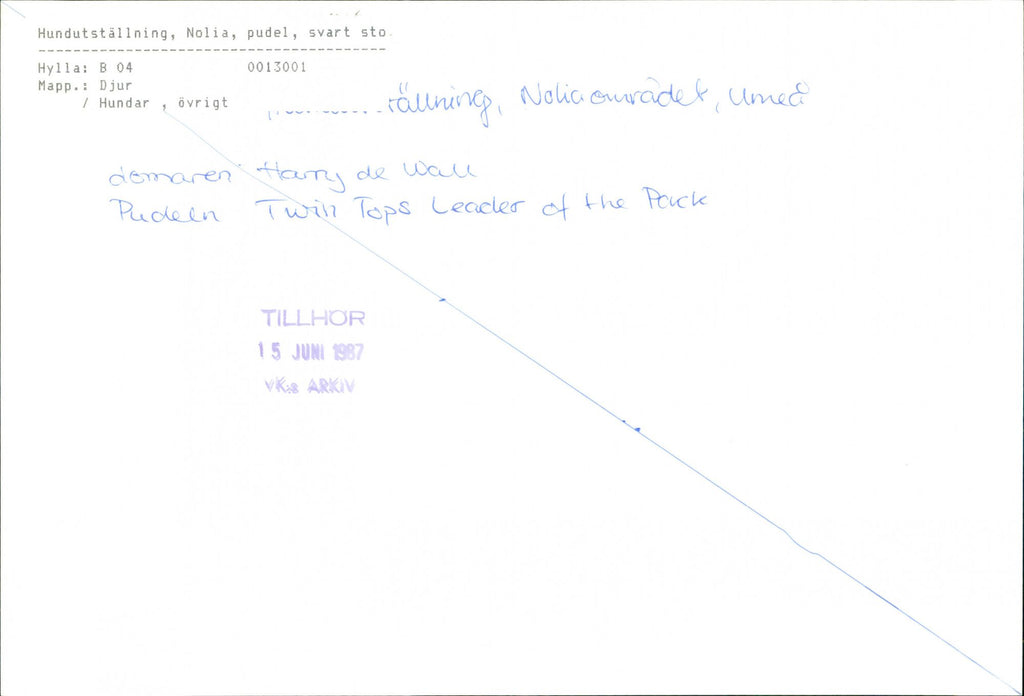 Hundutställning, Nolia, pudel, svart sto
----------------------------------------
Hylla: B 04 0013001
Mapp.: Djur
/ Hundar , övrigt
tällning, Noliaområdet, Umeå
domaren Harry de Wall
Pudeln Twin Tops Leader of the Pack
TILLHÖR
15 JUNI 1987
VK:s ARKIV